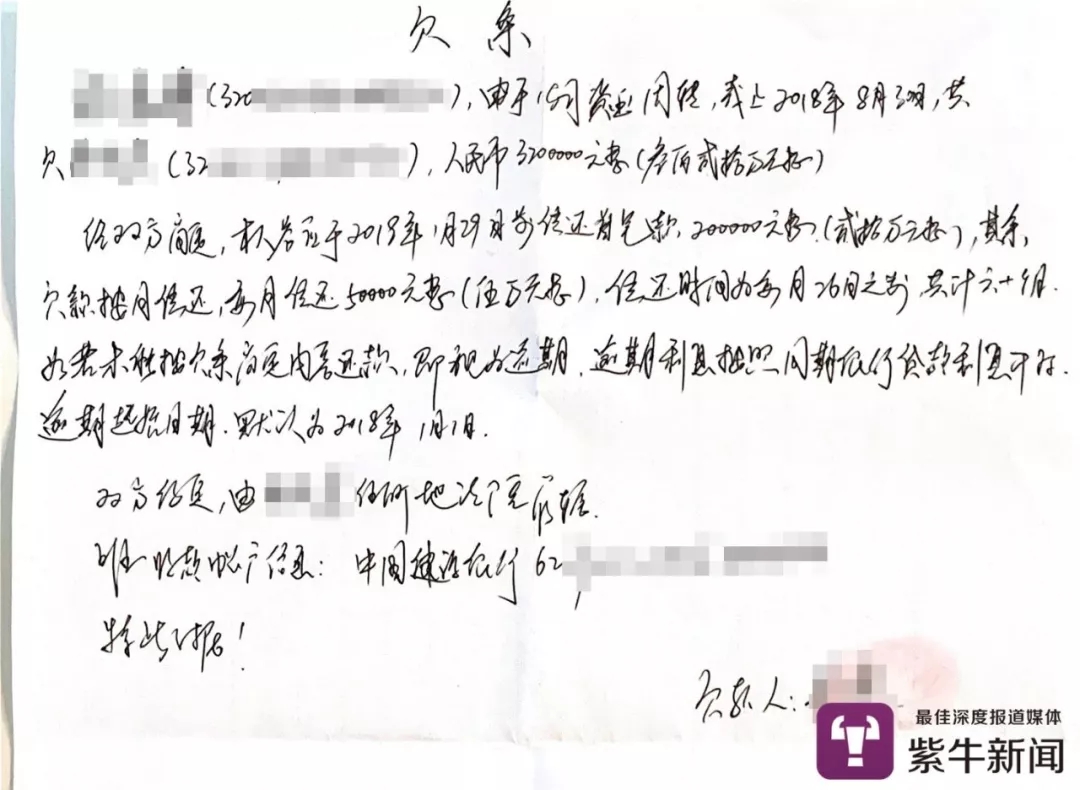 欠条
(320 ),由于公司资金周转,截止2018年8月30日,共
欠 (32 ),人民币3200000元整(叁佰贰拾万元整)
经双方商定,本人应于2019年1月29日前偿还首笔款,200000元整(贰拾万元整),其余
欠款按月偿还,每月偿还50000元整(伍万元整),偿还时间为每月26日之前 共计六十个月.
如若未能按欠条商定内容还款,即视为逾期.逾期利息按照同期银行贷款利息计算.
逾期起始日期.默认为2018年1月1日.
双方约定,由 住所地法院管辖.
收款账户信息: 中国建设银行 62
特此立据!
欠款人:
最佳深度报道媒体
紫牛新闻